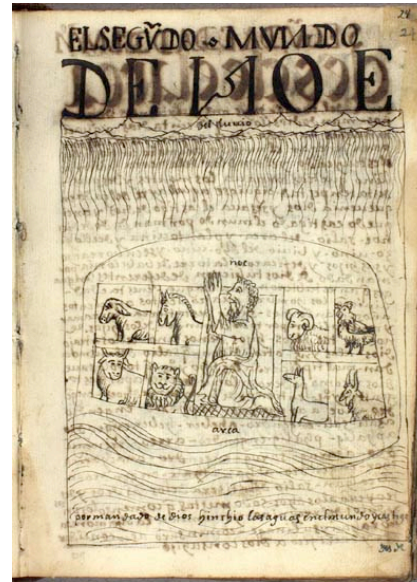 24
EL SEGṼDO MVNDO
DE NOE
del luuio
noe
arca
por mandado de dios hinchio las aguas en el mundo y castigo